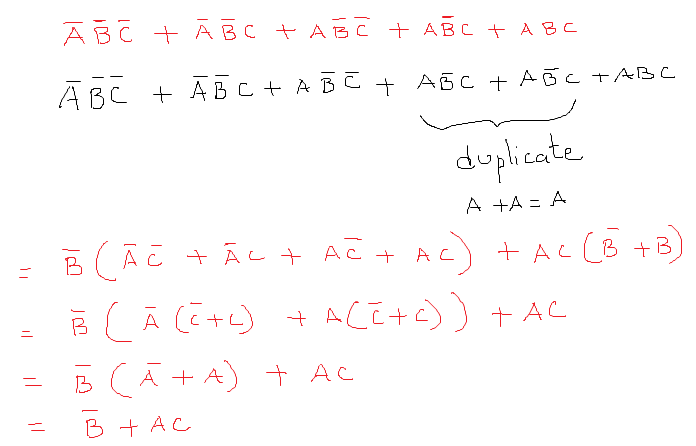 A̅ B̅ C̅ + A̅ B̅ C + A B̅ C̅ + A B̅ C + A B C
A̅ B̅ C̅ + A̅ B̅ C + A B̅ C̅ + A B̅ C + A B̅ C + A B C
duplicate
A + A = A
= B̅ ( A̅ C̅ + A̅ C + A C̅ + A C ) + A C ( B̅ + B )
= B̅ ( A̅ ( C̅ + C ) + A ( C̅ + C ) ) + A C
= B̅ ( A̅ + A ) + A C
= B̅ + A C